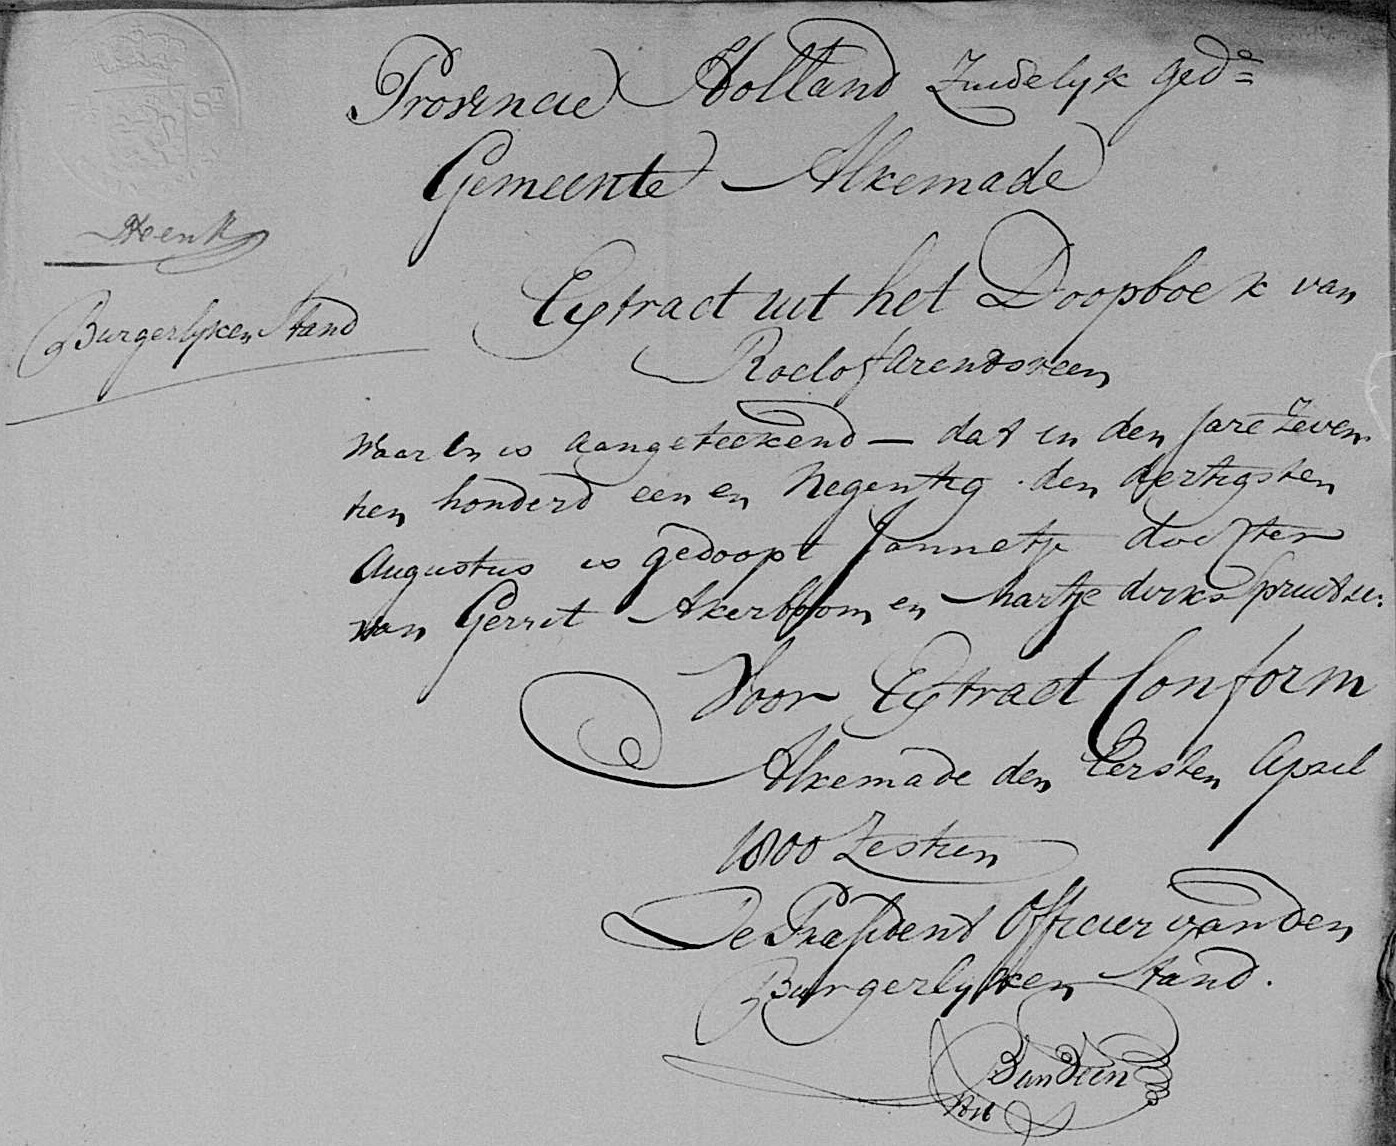 Provincie Holland Zuidelyk ged=e
Gemeente Alkemade
Burgerlyken Stand
Extract uit het Doopboek van
Roelofarendsveen
Waar in is aangeteekend — dat in den Jare Zeven
tien honderd een en Negentig den dertigsten
Augustus is gedoopt Jannetje dochter
van Gerrit Akerboom en Martje dirks
Voor Extract Conform
Alkemade den Eersten April
1800 Zestien
De Præsident Officier van den
Burgerlyken Stand.